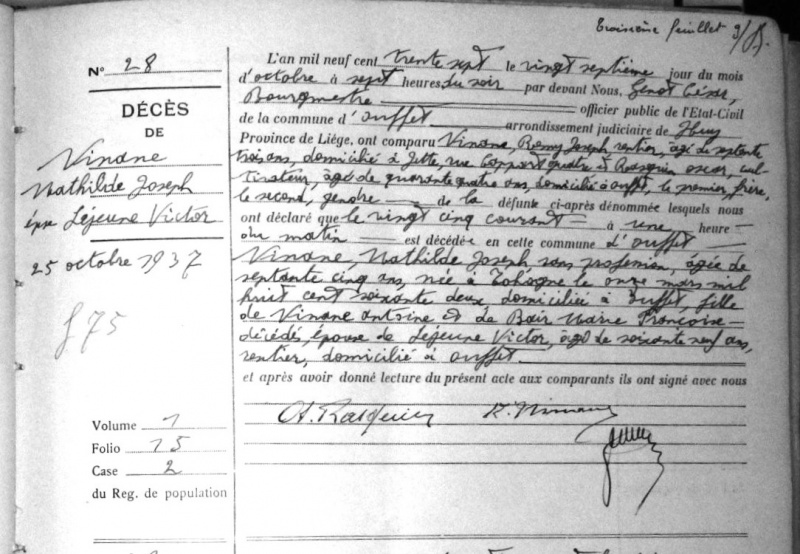 troisième feuillet
N° 28
DÉCÈS
DE
Vinane
Mathilde Joseph
épse Léjeune Victor
25 octobre 1937
f 75
Volume 1
Folio 15
Case 2
du Reg. de population
L'an mil neuf cent trente sept le vingt septième jour du mois
d'octobre à sept heures du soir par devant Nous, Genot César,
Bourgmestre officier public de l'Etat-Civil
de la commune d'ouffet arrondissement judiciaire de Huy
Province de Liége, ont comparu Vinane, Remy Joseph rentier, âgé de septante
trois ans, domicilié à Jette, rue quatre et Rasquin oscar, cul-
tivateur, âgé de quarante quatre ans, domicilié à ouffet, le premier, frère,
le second, gendre de la défunte ci-après dénommée lesquels nous
ont déclaré que le vingt cinq courant à une heure
du matin est décédée en cette commune d'ouffet
Vinane, Mathilde Joseph sans profession, âgée de
septante cinq ans, née à Tohogne le onze mars mil
huit cent soixante deux domiciliée à ouffet, fille
de Vinane Antoine et de Bair Marie Françoise
décédés, épouse de Léjeune Victor, âgé de soixante neuf ans,
rentier, domicilié à ouffet.
et après avoir donné lecture du présent acte aux comparants ils ont signé avec nous
O. Rasquin R. Vinane